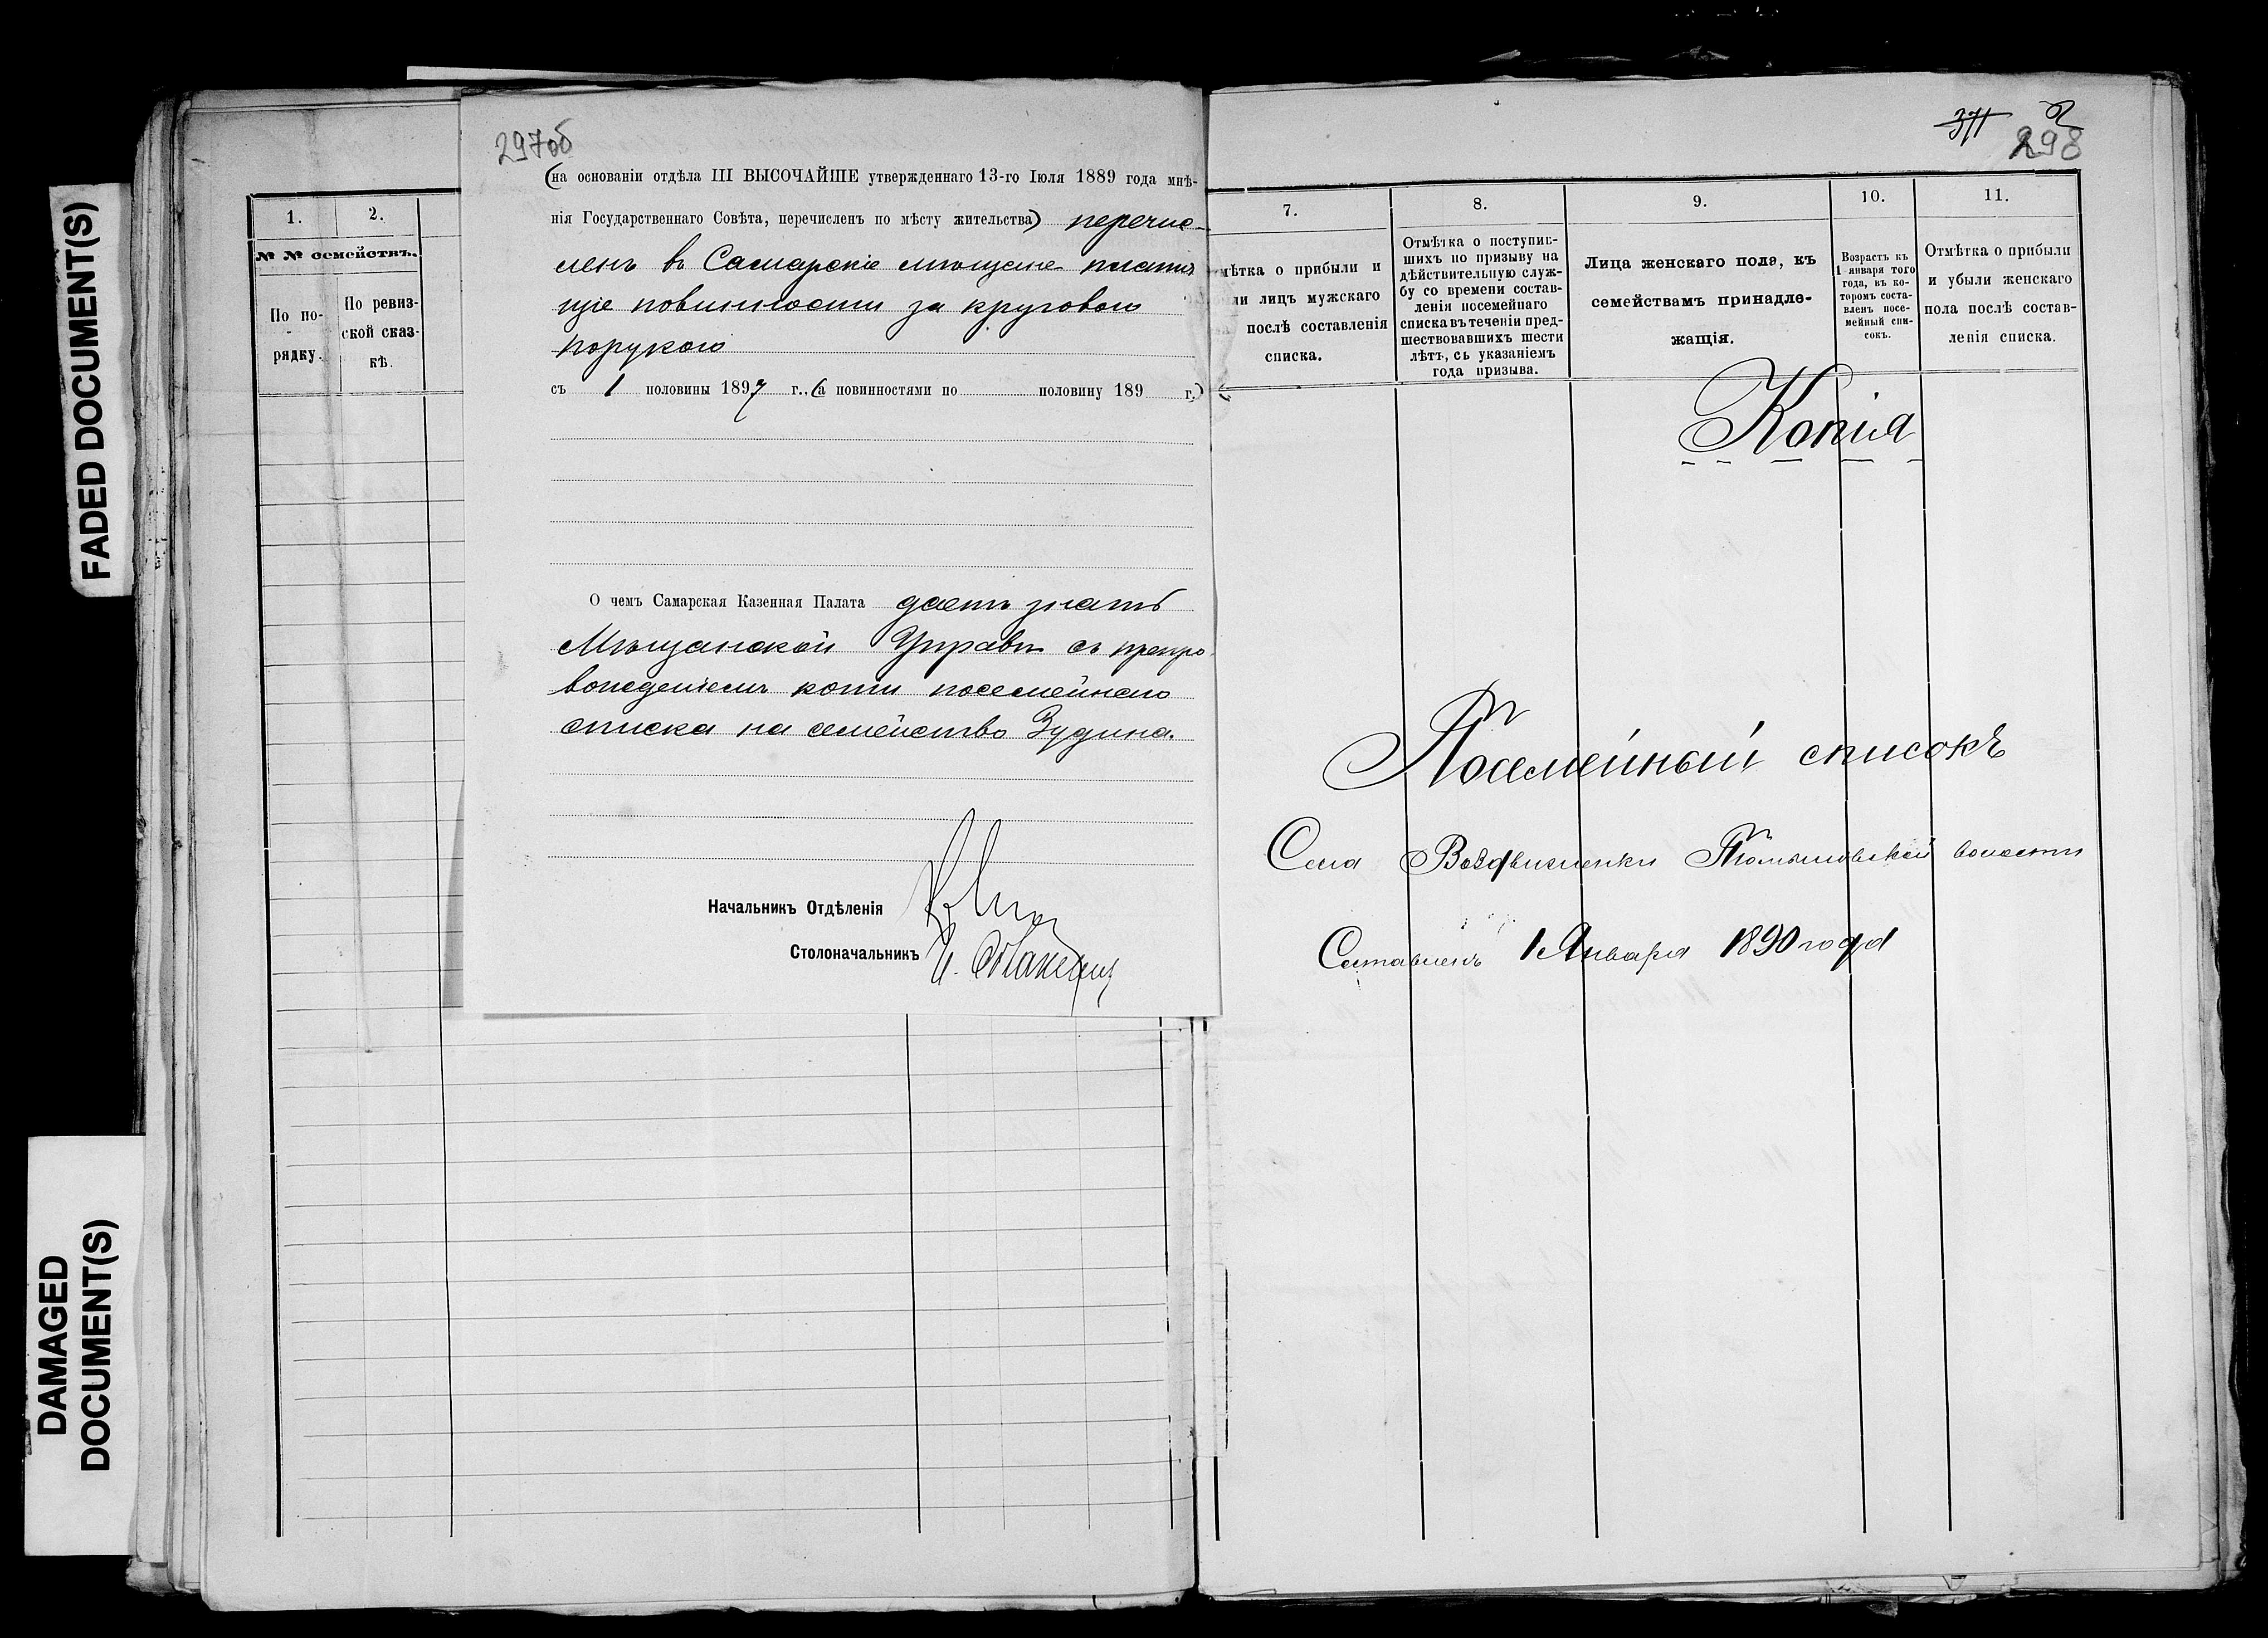 FADED DOCUMENT(S)
DAMAGED
DOCUMENT(S)
1.
2.
№ № семействъ.
По по-
рядку.
По ревиз-
ской сказ-
кѣ.
297об
(на основаніи отдѣла III ВЫСОЧАЙШЕ утвержденнаго 13-го Іюля 1889 года мнѣ-
нія Государственнаго Совѣта, перечисленъ по мѣсту жительства) перечис-
ленъ въ Самарскіе мѣщане платя
щіе повинности за круговою
порукою
съ 1 половины 1897 г., (а повинностями по половину 189 г.)
О чемъ Самарская Казенная Палата даетъ знать
Мѣщанской Управѣ съ препро
вожденіемъ копіи посемейнаго
списка на семейство Зудина.
Начальникъ Отдѣленія
Столоначальникъ
371
298
7.
мѣтка о прибыли и
ли лицъ мужскаго
послѣ составленія
списка.
8.
Отмѣтка о поступив-
шихъ по призыву на
дѣйствительную служ-
бу со времени состав-
ленія посемейнаго
списка въ теченіи пред-
шествовавшихъ шести
лѣтъ, съ указаніемъ
года призыва.
9.
Лица женскаго пола, къ
семействамъ принадле-
жащія.
10.
Возрастъ къ
1 января того
года, въ ко-
торомъ соста-
вленъ посе-
мейный спи-
сокъ.
11.
Отмѣтка о прибыли
и убыли женскаго
пола послѣ состав-
ленія списка.
Копія
Посемейный списокъ
Села Воздвиженки волости
Составленъ 1 Января 1890 года